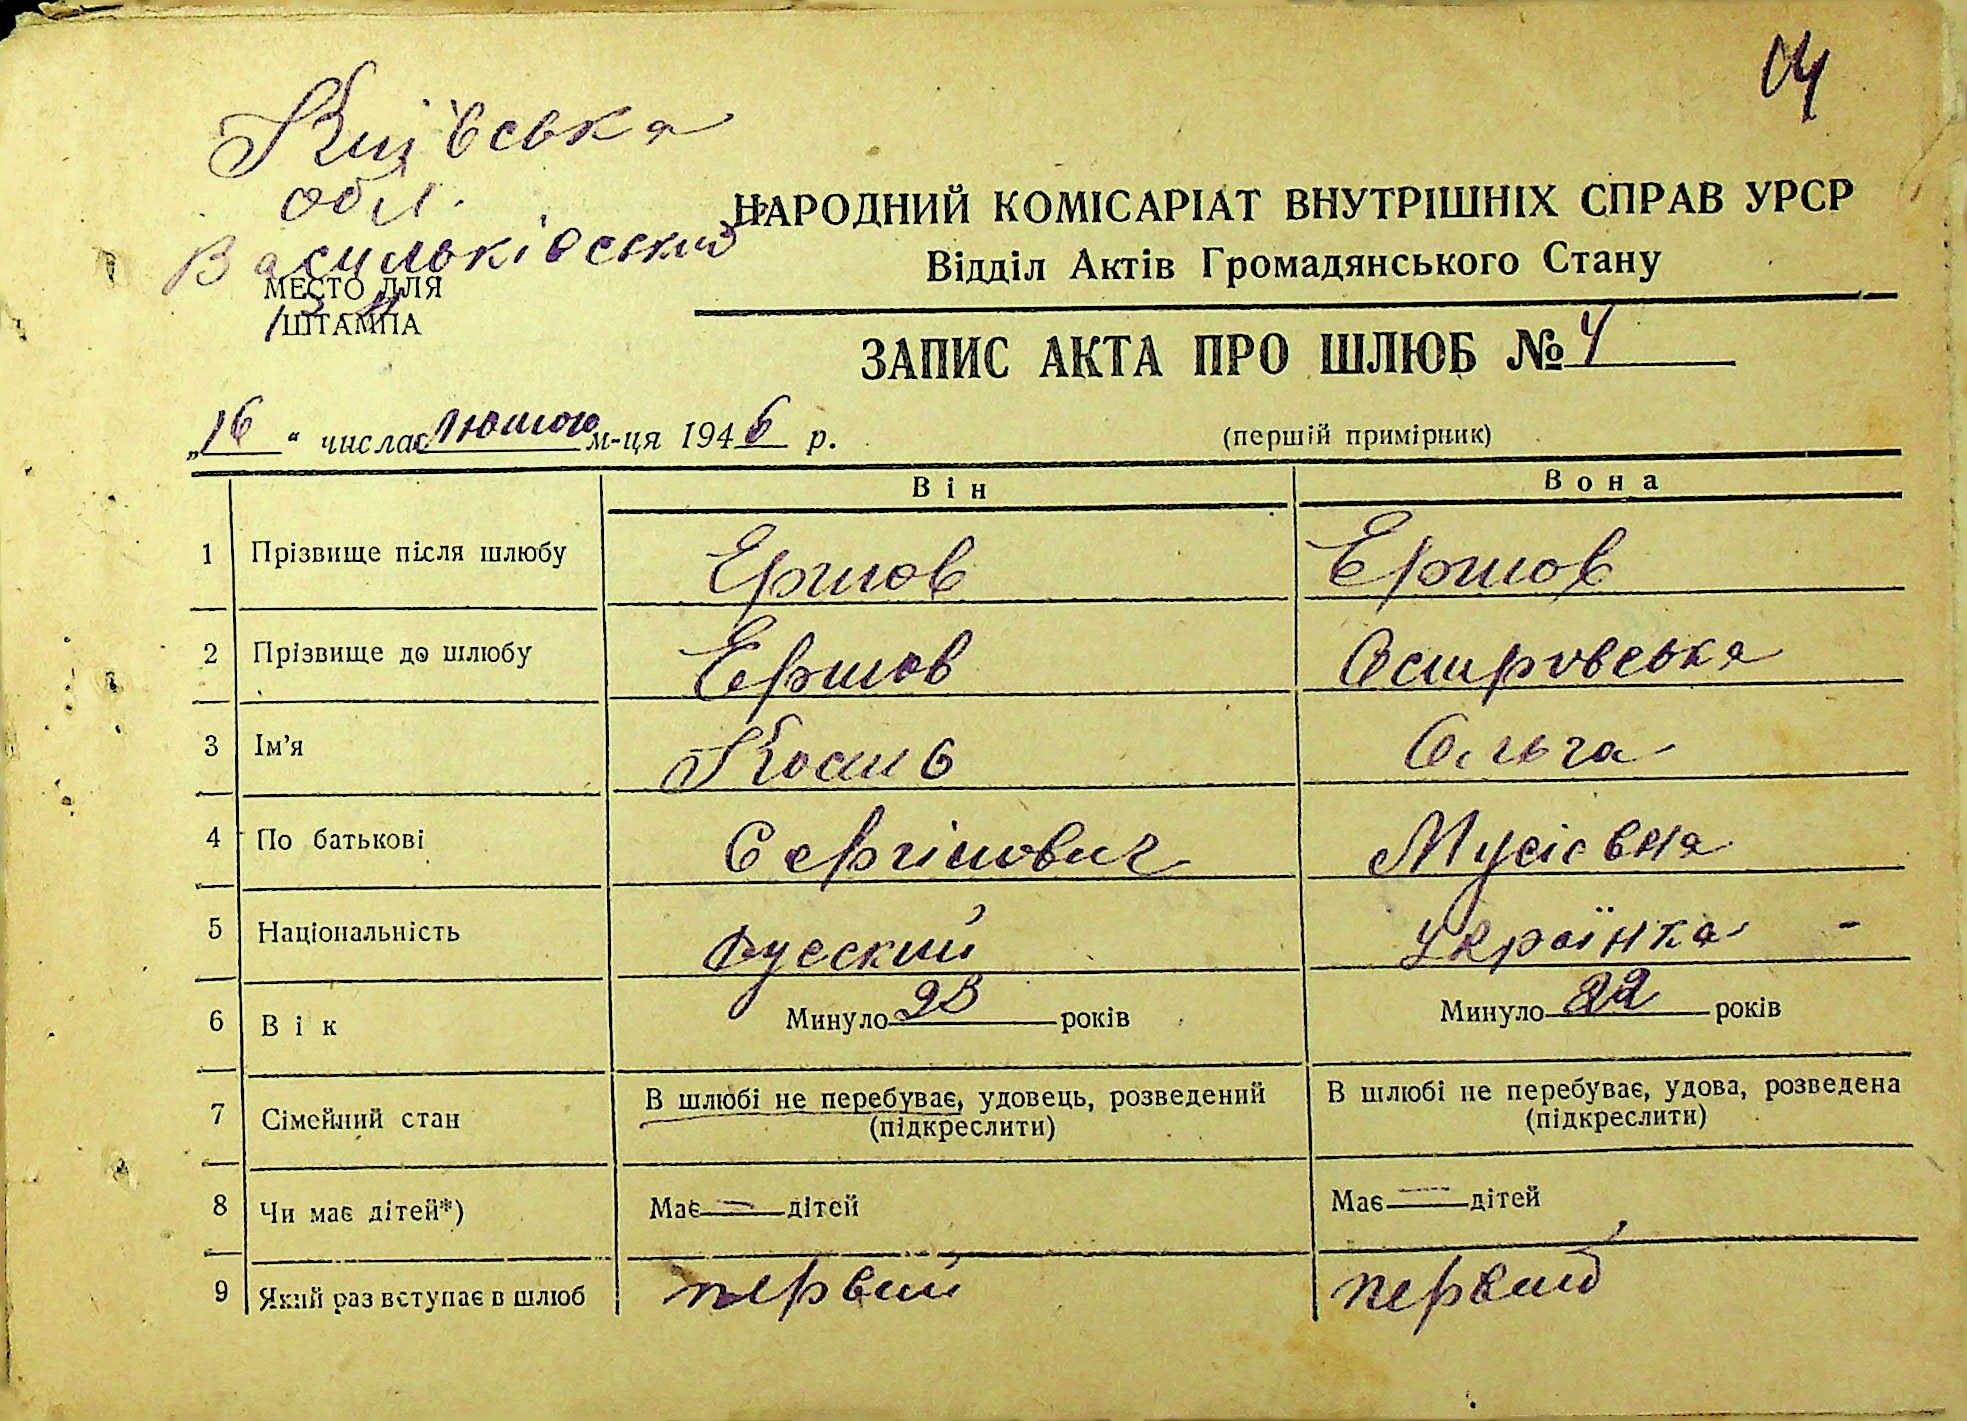 04
Київська
обл.
Васильківский
НАРОДНИЙ КОМІСАРІАТ ВНУТРІШНІХ СПРАВ УРСР
Відділ Актів Громадянського Стану
МЕСТО ДЛЯ
ШТАМПА
ЗАПИС АКТА ПРО ШЛЮБ № 4
„16“ числа лютого м-ця 1946 р.
(перший примірник)
Він Вона
1 Прізвище після шлюбу Ершов Ершов
2 Прізвище до шлюбу Ершов Островська
3 Ім’я Ольга
4 По батькові Сергійович Мусієвна
5 Національність русский українка -
6 Вік Минуло 23 років Минуло 22 років
7 Сімейний стан В шлюбі не перебуває, удовець, розведений В шлюбі не перебуває, удова, розведена
(підкреслити) (підкреслити)
8 Чи має дітей*) Має — дітей Має — дітей
9 Який раз вступає в шлюб первий первий